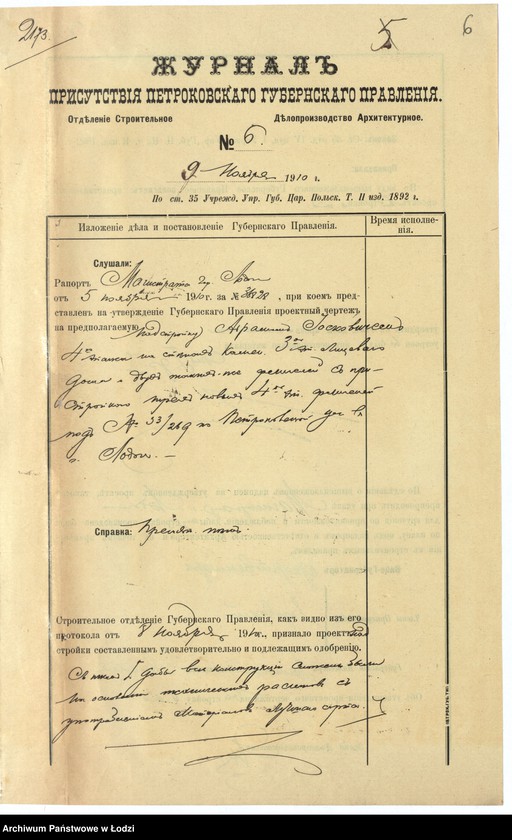 2173.
5
6
ЖУРНАЛЪ
ПРИСУТСТВІЯ ПЕТРОКОВСКАГО ГУБЕРНСКАГО ПРАВЛЕНІЯ.
Отдѣленіе Строительное Дѣлопроизводство Архитектурное.
№ 6.
9 Ноября 1910 г.
По ст. 35 Учрежд. Упр. Губ. Цар. Польск. Т. II изд. 1892 г.
Изложеніе дѣла и постановленіе Губернскаго Правленія.
Время исполненія.
Слушали:
Рапортъ Магистрата гор. Лодзи
отъ 5 ноября 1910 г. за № , при коемъ пред-
ставленъ на утвержденіе Губернскаго Правленія проектный чертежъ
на предполагаемую надстройку
4го этажа на камен. 3хъ эт. лицеваго
дома и двухъ такихъ-же флигелей съ при-
стройкою новыхъ 4хъ эт. флигелей
подъ № 33/269 по Петроковской ул. въ
г. Лодзи. —
Справка:
Строительное отдѣленіе Губернскаго Правленія, какъ видно изъ его
протокола отъ 8 ноября 1910 г., признало проектъ над
стройки составленнымъ удовлетворительно и подлежащимъ одобренію.
съ тѣмъ дабы всѣ конструкціи были
на основаніи техническихъ расчетовъ съ
употребленіемъ матеріаловъ лучшаго сорта.